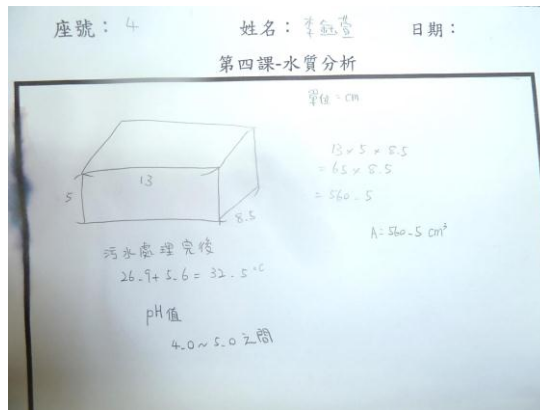 座號：4 姓名：李鈺萱 日期：
第四課-水質分析
單位=cm
13×5×8.5
=65×8.5
=560.5
A=560.5 cm³
5
13
8.5
污水處理完後
26.9+5.6=32.5°C
pH值
4.0~5.0之間